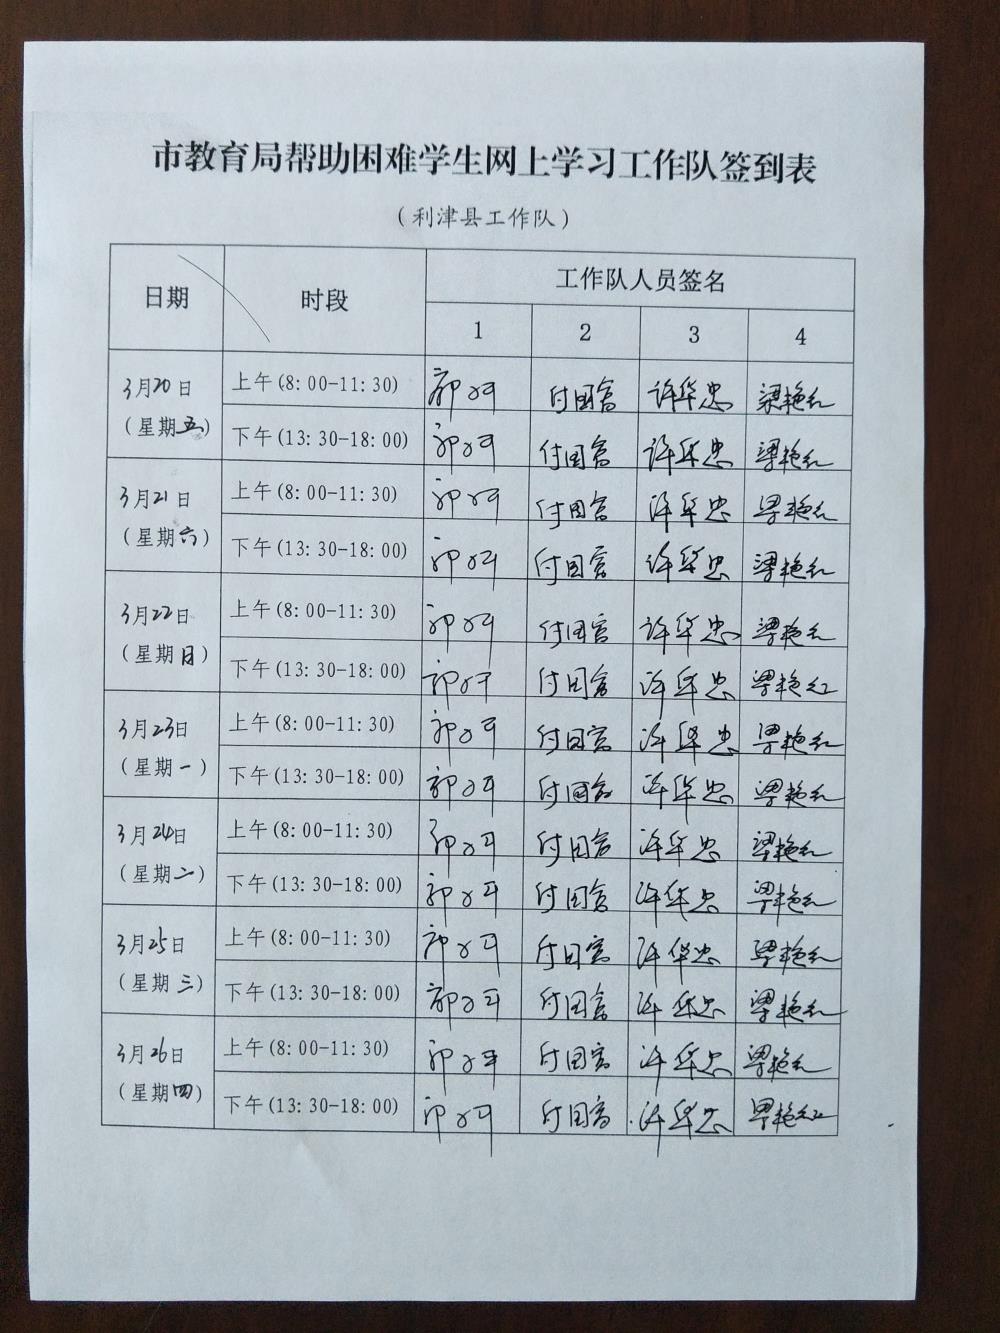 市教育局帮助困难学生网上学习工作队签到表
（利津县工作队）
日期 时段 工作队人员签名
1 2 3 4
3月20日
（星期五）
上午(8:00-11:30) 付国富 许华忠 梁艳红
下午(13:30-18:00) 付国富 许华忠 梁艳红
3月21日
（星期六）
上午(8:00-11:30) 付国富 许华忠 梁艳红
下午(13:30-18:00) 付国富 许华忠 梁艳红
3月22日
（星期日）
上午(8:00-11:30) 付国富 许华忠 梁艳红
下午(13:30-18:00) 付国富 许华忠 梁艳红
3月23日
（星期一）
上午(8:00-11:30) 付国富 许华忠 梁艳红
下午(13:30-18:00) 付国富 许华忠 梁艳红
3月24日
（星期二）
上午(8:00-11:30) 付国富 许华忠 梁艳红
下午(13:30-18:00) 付国富 许华忠 梁艳红
3月25日
（星期三）
上午(8:00-11:30) 付国富 许华忠 梁艳红
下午(13:30-18:00) 付国富 许华忠 梁艳红
3月26日
（星期四）
上午(8:00-11:30) 付国富 许华忠 梁艳红
下午(13:30-18:00) 付国富 许华忠 梁艳红